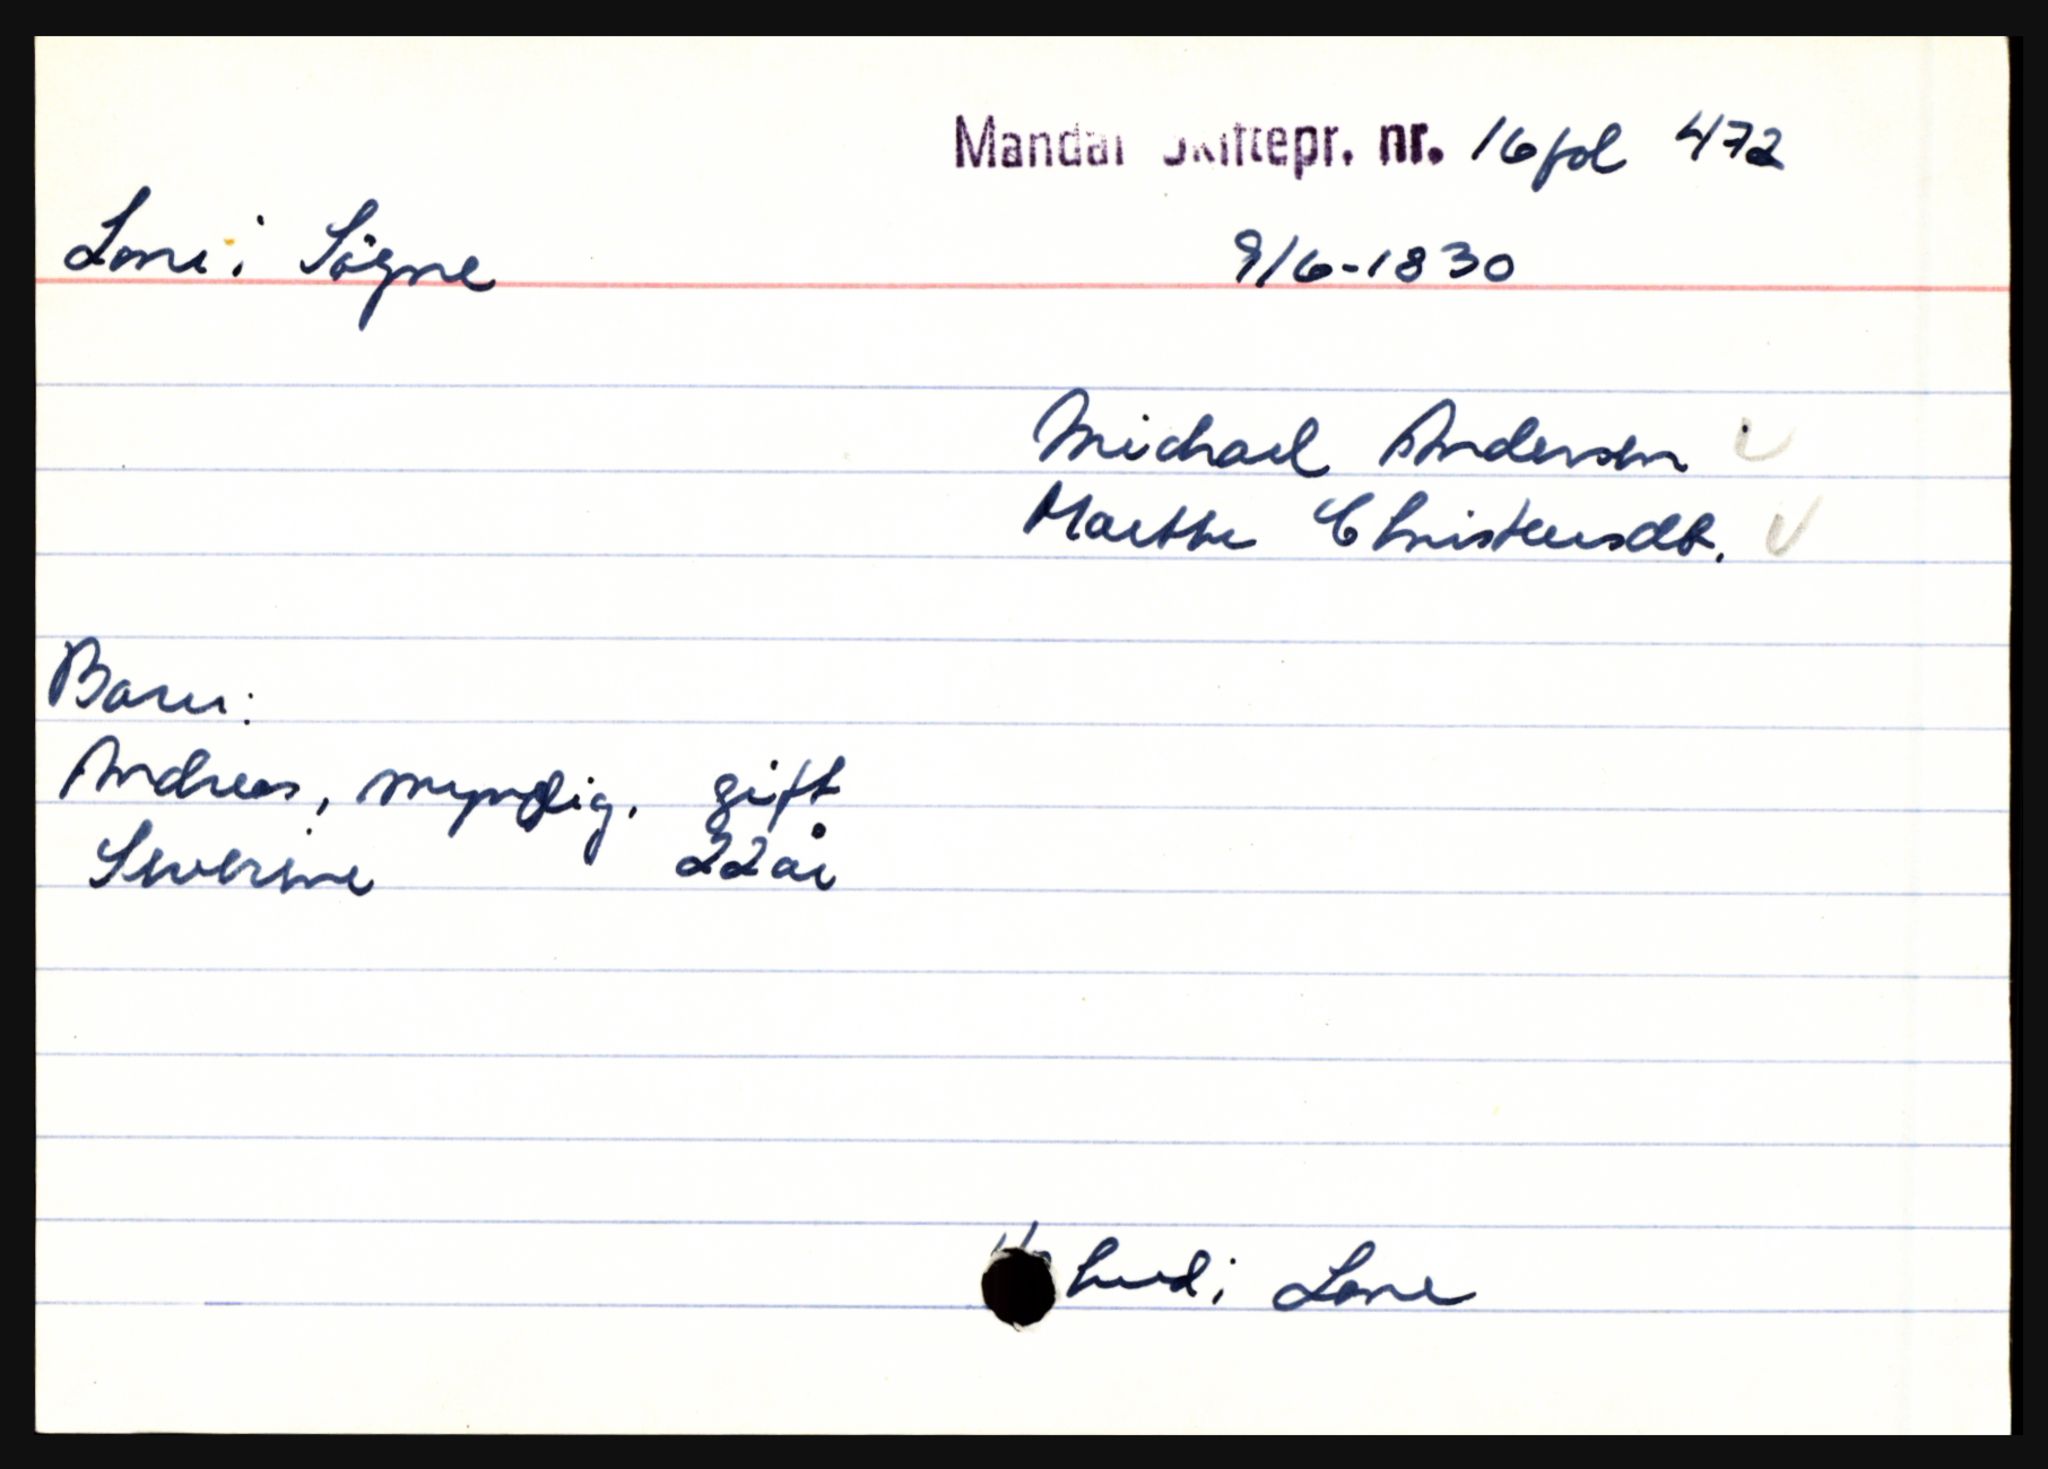 Mandal Skiftepr. nr. 16 fol 472
Lone i Søgne 9/6-1830
Michael Andersen V
Marthe Christensdt. V
Barn:
Andreas, myndig, gift
Severine 22 år
hud i Lone